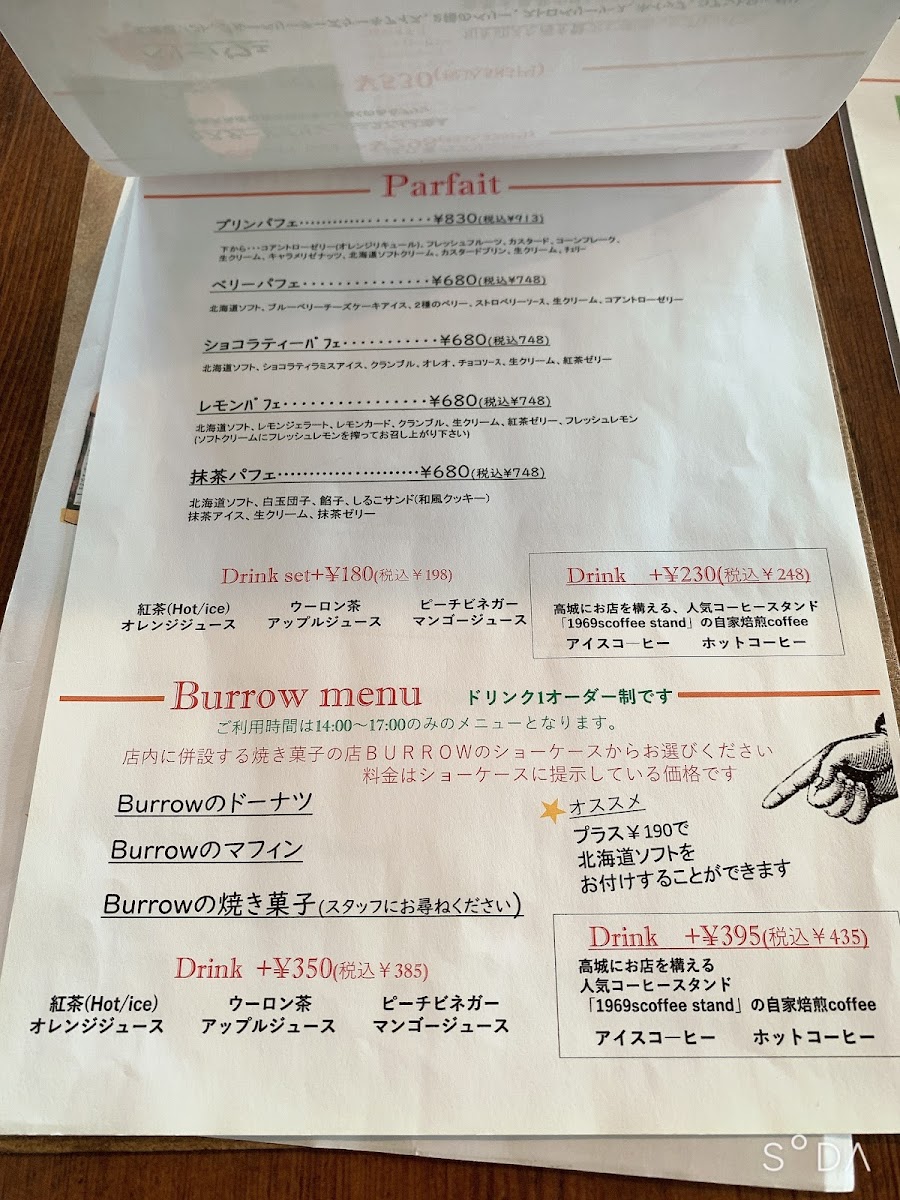 Parfait
プリンパフェ・・・・・・・・・・・・・・・・・・・・¥830(税込¥913)
下から・・・コアントローゼリー(オレンジリキュール)、フレッシュフルーツ、カスタード、コーンフレーク、
生クリーム、キャラメリゼナッツ、北海道ソフトクリーム、カスタードプリン、生クリーム、チェリー
ベリーパフェ・・・・・・・・・・・・・・・・¥680(税込¥748)
北海道ソフト、ブルーベリーチーズケーキアイス、2種のベリー、ストロベリーソース、生クリーム、コアントローゼリー
ショコラティーパフェ・・・・・・・・・・・¥680(税込748)
北海道ソフト、ショコラティラミスアイス、クランブル、オレオ、チョコソース、生クリーム、紅茶ゼリー
レモンパフェ・・・・・・・・・・・・・・・・・¥680(税込¥748)
北海道ソフト、レモンジェラート、レモンカード、クランブル、生クリーム、紅茶ゼリー、フレッシュレモン
(ソフトクリームにフレッシュレモンを搾ってお召し上がり下さい)
抹茶パフェ・・・・・・・・・・・・・・・・・・・・・・¥680(税込¥748)
北海道ソフト、白玉団子、餡子、しるこサンド(和風クッキー)
抹茶アイス、生クリーム、抹茶ゼリー
Drink set+¥180(税込¥198)
紅茶(Hot/ice) ウーロン茶 ピーチビネガー
オレンジジュース アップルジュース マンゴージュース
Drink +¥230(税込¥248)
高城にお店を構える、人気コーヒースタンド
「1969scoffee stand」の自家焙煎coffee
アイスコーヒー ホットコーヒー
Burrow menu ドリンク1オーダー制です
ご利用時間は14:00～17:00のみのメニューとなります。
店内に併設する焼き菓子の店BURROWのショーケースからお選びください
料金はショーケースに提示している価格です
Burrowのドーナツ
Burrowのマフィン
Burrowの焼き菓子(スタッフにお尋ねください)
オススメ
プラス¥190で
北海道ソフトを
お付けすることができます
Drink +¥350(税込¥385)
紅茶(Hot/ice) ウーロン茶 ピーチビネガー
オレンジジュース アップルジュース マンゴージュース
Drink +¥395(税込¥435)
高城にお店を構える
人気コーヒースタンド
「1969scoffee stand」の自家焙煎coffee
アイスコーヒー ホットコーヒー
SODA